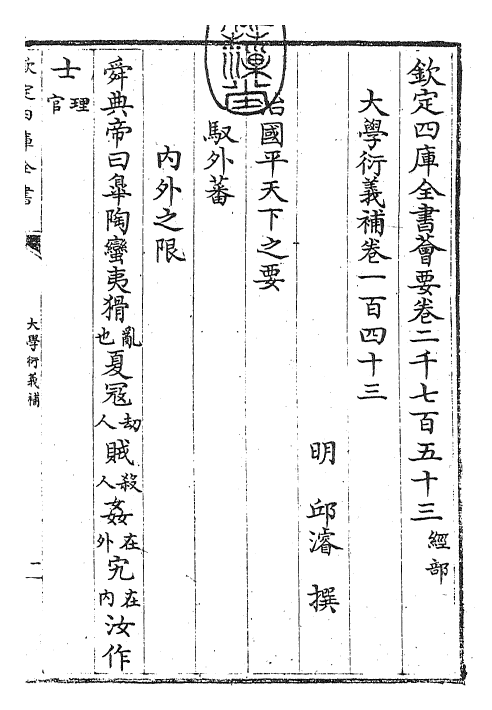 欽定四庫全書薈要卷二千七百五十三 經部
大學衍義補卷一百四十三
明 邱濬 撰
治國平天下之要
馭外蕃
內外之限
舜典帝曰臯陶蠻夷猾亂也夏寇劫人賊殺人姦在外宄在內汝作
士理官
欽定四庫全書
大學衍義補